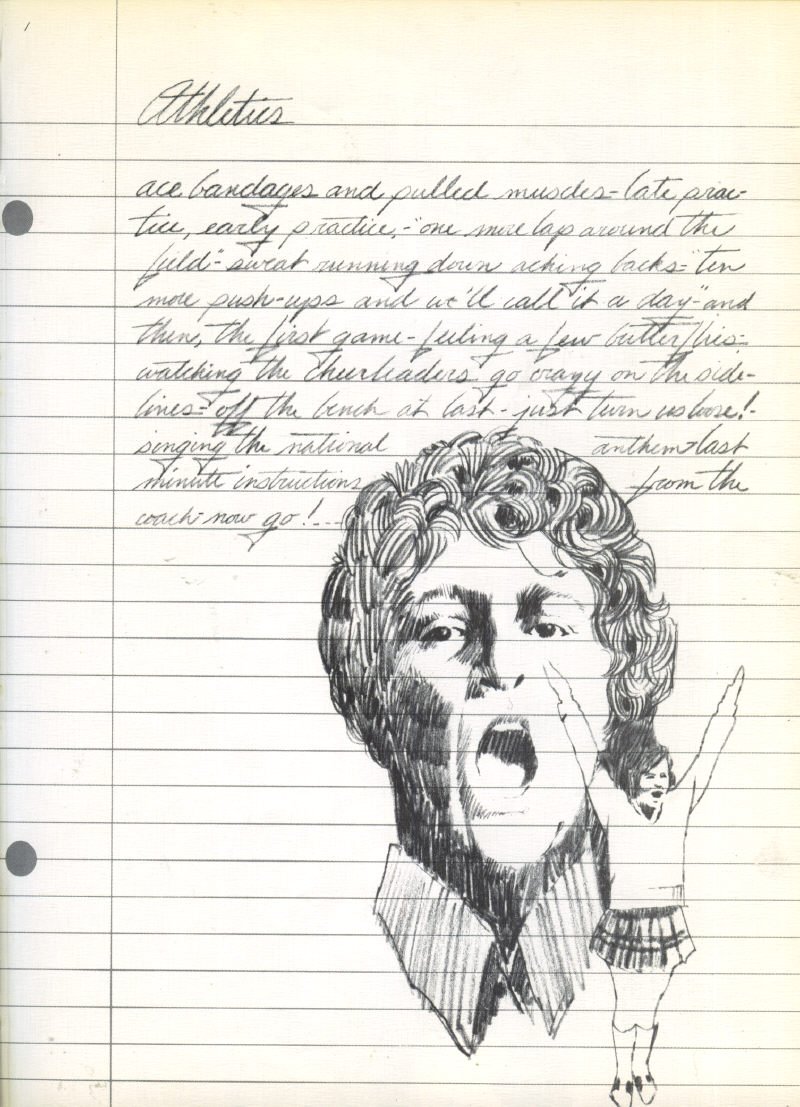 Athletics
ace bandages and pulled muscles - late prac-
tice, early practice, - "one more lap around the
field" - sweat running down aching backs - "ten
more push-ups and we'll call it a day" - and
then, the first game - feeling a few butterflies -
watching the cheerleaders go crazy on the side-
lines - off the bench at last - just turn us loose! -
singing the national anthem - last
minute instructions from the
coach - now go! ...